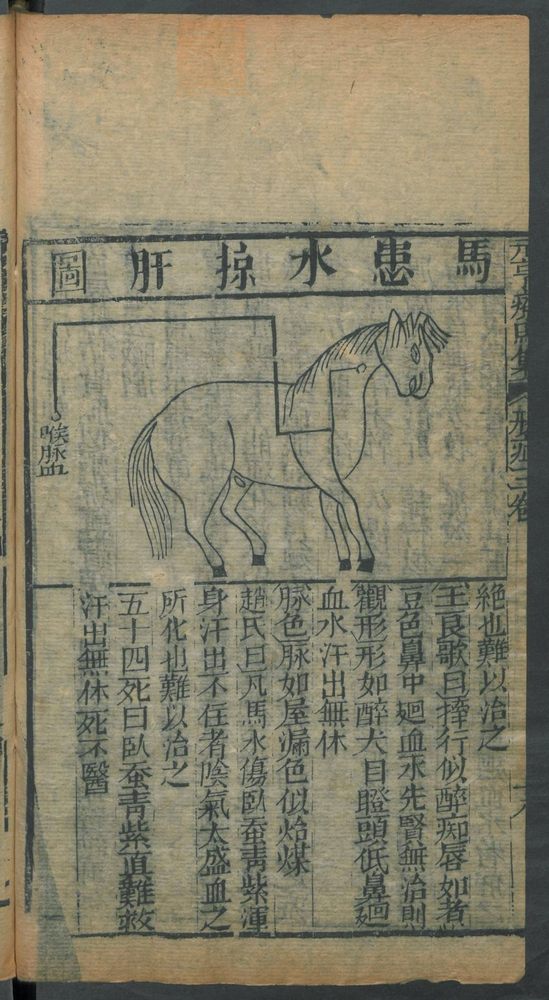 馬患水掠肝圖
喉脉血
絶也難以治之
王良歌曰摔行似醉痴唇如煮
豆色鼻中廻血水先賢無治則
觀形形如醉犬目瞪頭低鼻廻
血水汗出無休
脉色脉如屋漏色似炲煤
趙氏曰凡馬水傷臥蚕青紫渾
身汗出不住者陰氣太盛血之
所化也難以治之
五十四死曰臥蚕青紫直難救
汗出無休死不醫